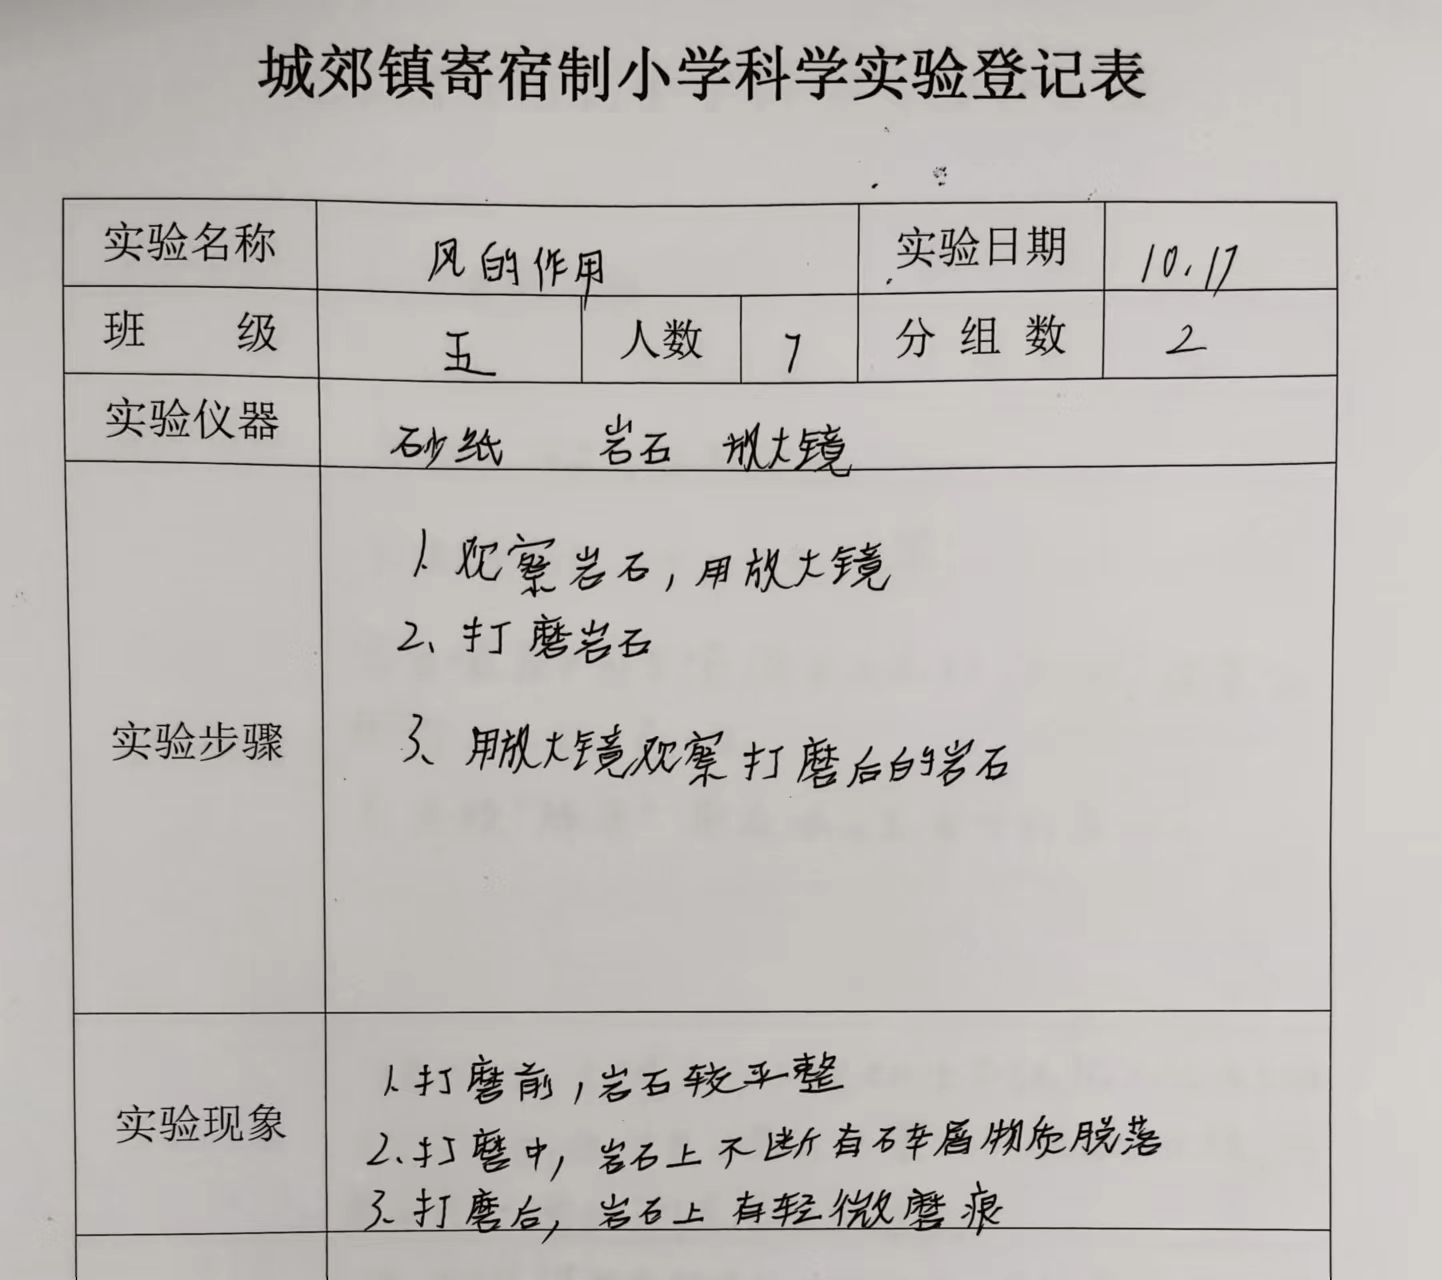 城郊镇寄宿制小学科学实验登记表
实验名称 风的作用 实验日期 10.17
班 级 五 人数 7 分组数 2
实验仪器 砂纸 岩石 放大镜
实验步骤
1、观察岩石，用放大镜
2、打磨岩石
3、用放大镜观察打磨后的岩石
实验现象
1、打磨前，岩石较平整
2、打磨中，岩石上不断有碎屑物质脱落
3、打磨后，岩石上有轻微磨痕